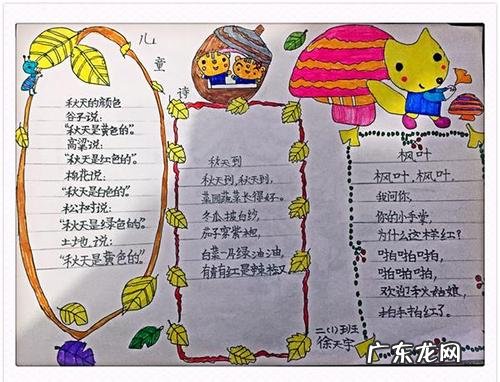 儿童诗
秋天的颜色
谷子说:
“秋天是黄色的”。
高粱说:
“秋天是红色的”。
棉花说:
“秋天是白色的”。
松树说:
“秋天是绿色的”。
土地说:
“秋天是黄色的”。
秋天到
秋天到,秋天到,
菜园蔬菜长得好。
冬瓜披白纱,
茄子穿紫袍,
白菜一片绿油油,
有青有红是辣椒
枫叶
枫叶,枫叶,
我问你,
你的小手掌,
为什么这样红?
啪啪啪啪,
啪啪啪啪,
欢迎秋姑娘,
拍手拍红了。
二(1)班
徐天宇
广东龙网